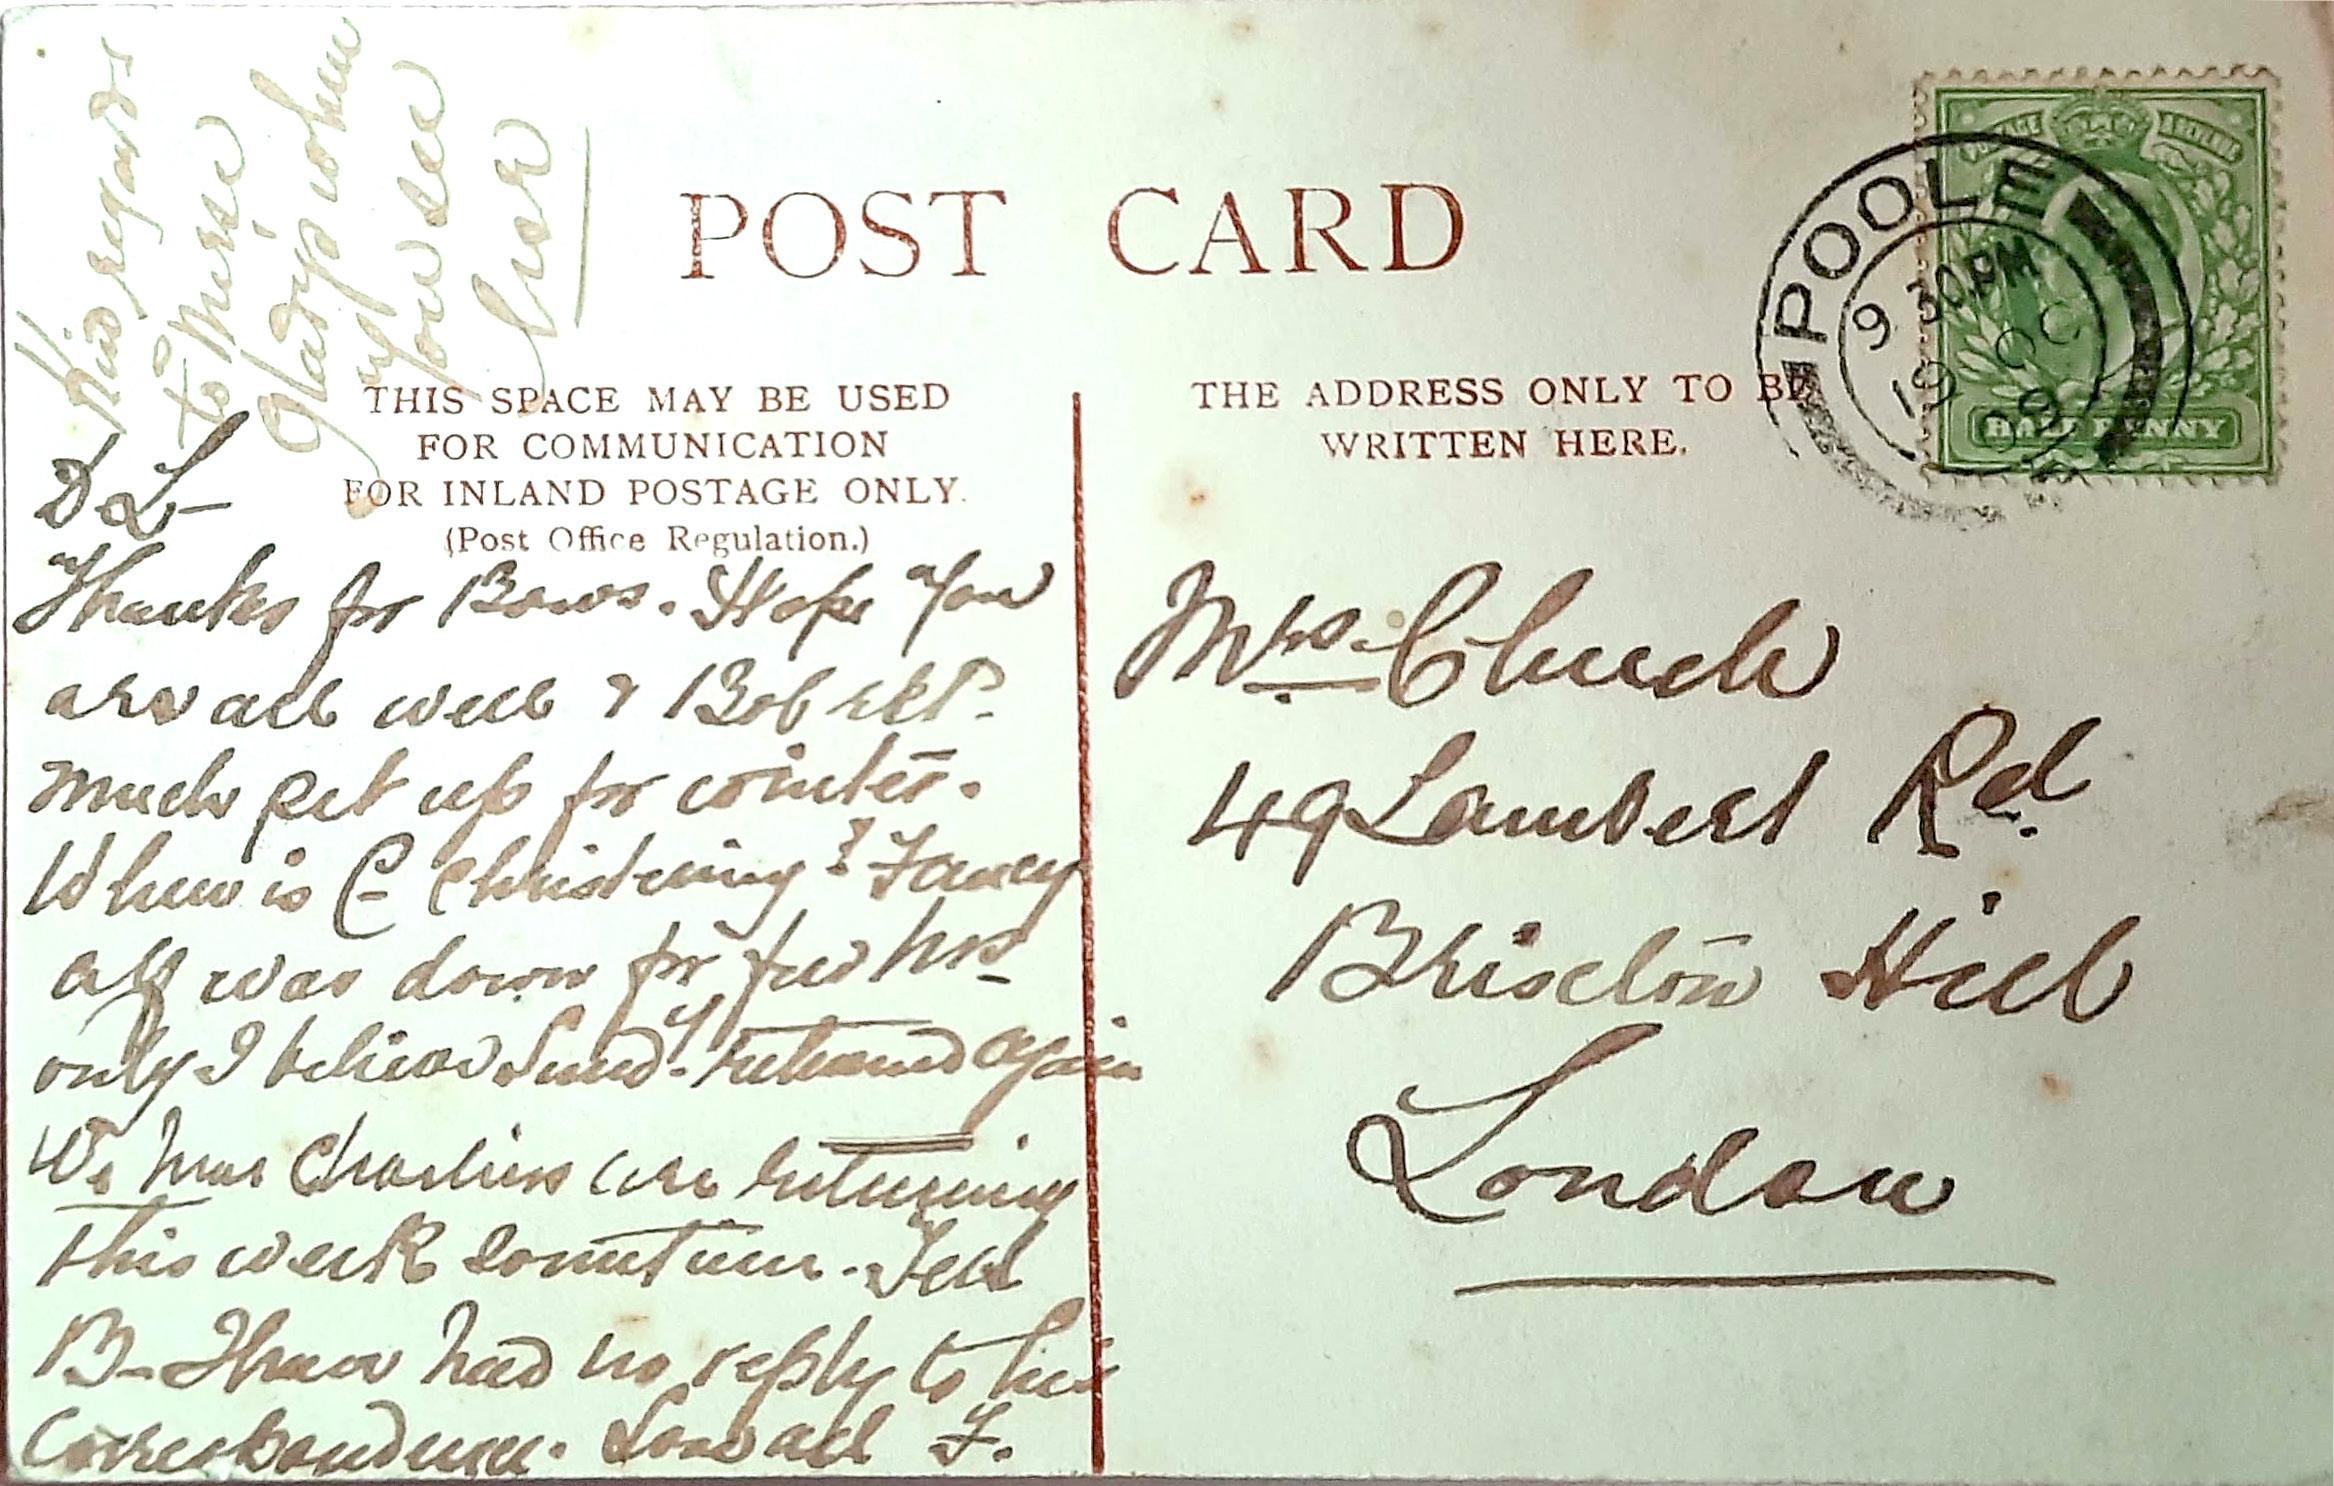 Kind regards
to Miss
Gladys when
You see
her
POST CARD
THIS SPACE MAY BE USED
FOR COMMUNICATION
FOR INLAND POSTAGE ONLY.
(Post Office Regulation.)
THE ADDRESS ONLY TO BE
WRITTEN HERE.
POOLE
9 30PM
19 OC
09
HALF PENNY
D L-
Thanks for Bows. Hope You
are all well & Bob
much pet up for winter.
When is C- Christening? Fancy
Alf was down for few hrs
only I believe Sundy. returned again
We hear Charlies are returning
this week sometime. Tell
B- I have had no reply to his
Correspondence. Love all F.
Mrs. Church
49 Lambert Rd.
Brixton Hill
London